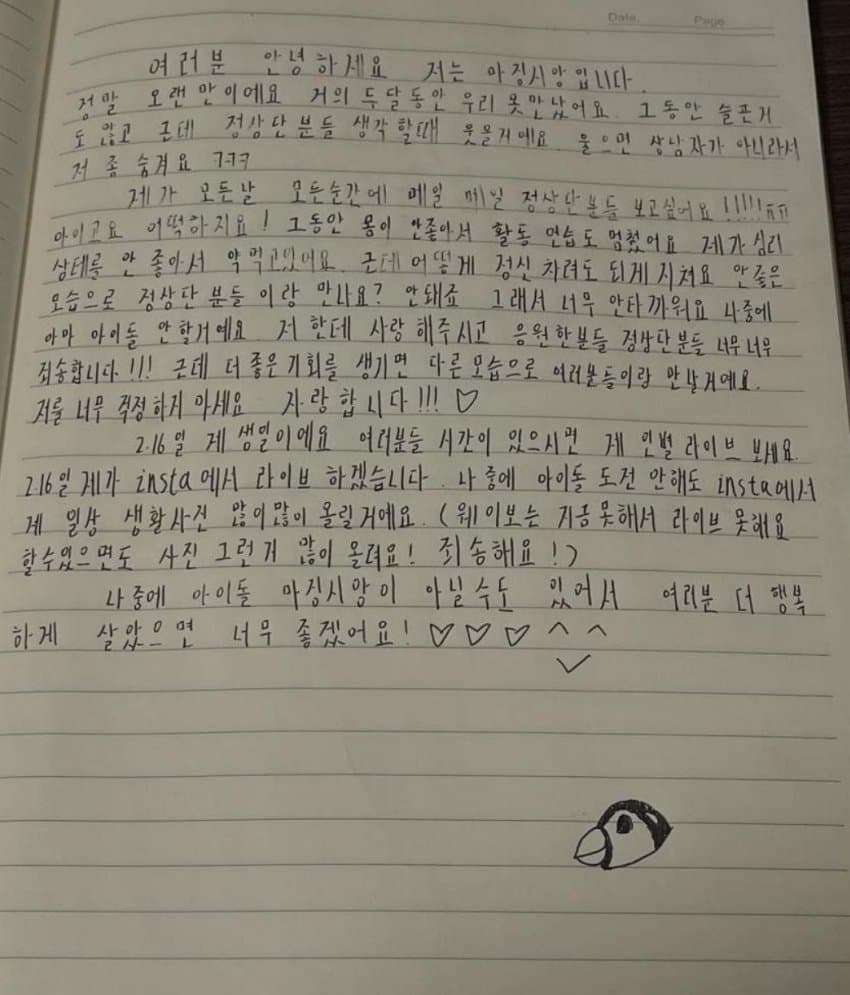 Date. Page
여러분 안녕하세요 저는 마징시앙입니다.
정말 오랜만이에요 거의 두달동안 우리 못만났어요. 그동안 슬픈거
도 많고 근데 정상단분들 생각할때 못울거예요. 울으면 상남자가 아니라서
저 좀 숨겨요 ㅋㅋㅋ
제가 모든날 모든순간에 매일 매일 정상단분들 보고싶어요!!!!!ㅠㅠ
아이고요 어떡하지요! 그동안 몸이 안좋아서 활동 연습도 멈췄어요 제가 심리
상태를 안 좋아서 약 먹고있어요. 근데 어떻게 정신 차려도 되게 지쳐요 안좋은
모습으로 정상단분들이랑 만나요? 안돼죠 그래서 너무 안타까워요 나중에
아마 아이돌 안할거예요. 저 한데 사랑 해주시고 응원한분들 정상단분들 너무너무
죄송합니다!!! 근데 더 좋은기회를 생기면 다른 모습으로 여러분들이랑 만날거예요.
저를 너무 걱정하지 마세요 사랑합니다!!! ♡
2.16일 제 생일이에요 여러분들 시간이 있으시면 제 인별 라이브 보세요.
2.16일 제가 insta에서 라이브 하겠습니다. 나중에 아이돌 도전 안해도 insta에서
제 일상 생활사진 많이많이 올릴거예요. (웨이보는 지금못해서 라이브 못해요
할수있으면도 사진 그런거 많이 올려요! 죄송해요!)
나중에 아이돌 마징시앙이 아닐수도 있어서 여러분 더 행복
하게 살았으면 너무 좋겠어요! ♡ ♡ ♡ ^ ^